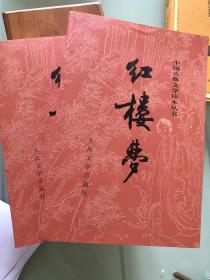 中国古典文学读本丛书
红楼梦
人民文学出版社
人民文学出版社